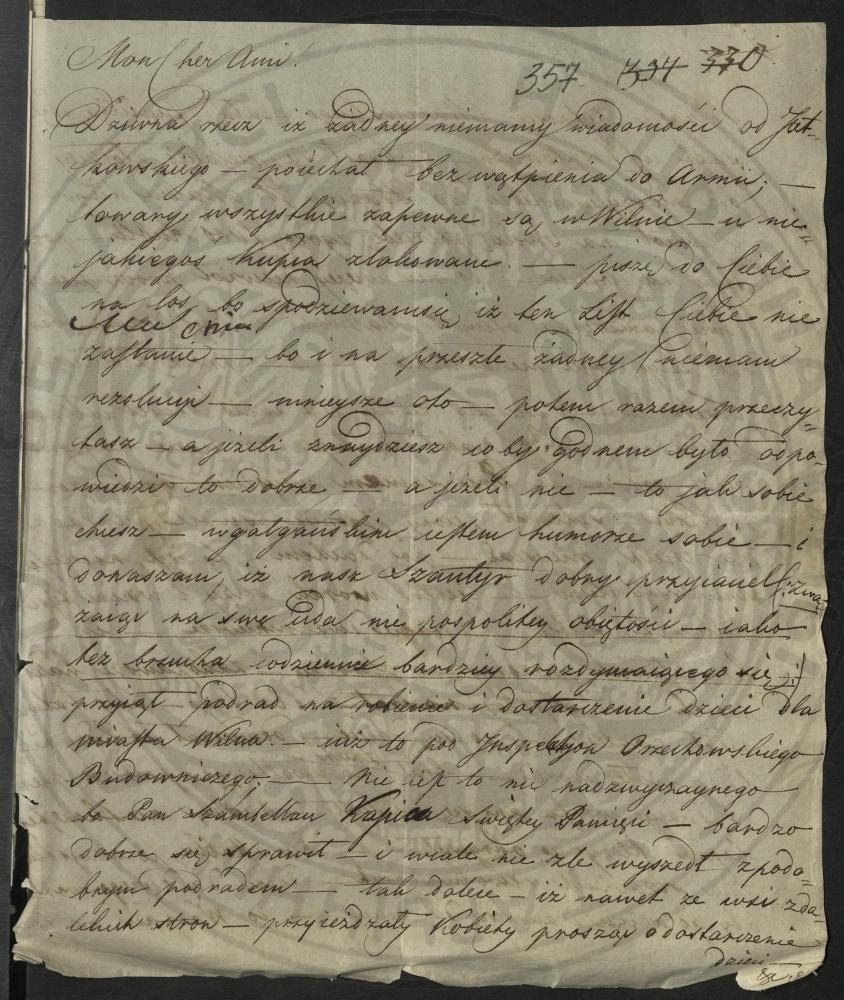 Mon Cher Ami!
357 434 330
Dziwna rzecz iż żadney niemamy wiadomości od Jat-
kowskiego — poiechał bez wątpienia do Armii; —
towary wszystkie zapewne są w Wilnie — u nie-
jakiegoś Kupca zlokowane. — piszę do Ciebie
na los, bo spodziewamsię, iż ten List Ciebie nie
zastanie — bo i na przeszłe żadney niemam
rezolucyi — mnieysze oto — potem razem przeczy-
tasz — a jeżeli znaydziesz coby godnem było odpo-
wiedzi to dobrze, — a jeżeli nie — to jak sobie
chcesz — w gałgańskim iestem humorze sobie — i
donaszam, iż nasz Szantyr dobry przyiaciel (: zwa-
żaiąc na swe uda nie pospolitey obiętości — iako
też brzucha codziennie bardziey rozdymaiącego się :)
przyiął podrad na robienie i dostarczenie dzieci dla
miasta Wilna. — iuż to pod Inspekcyą Orzechowskiego
Budowniczego; — Nie iest to nic nadzwyczaynego
bo Pan Szambellan Kapica Swiętey Pamięci — bardzo
dobrze się sprawił — i wcale nie źle wyszedł z podo-
bnym podradem — tak dalece — iż nawet ze wsi zda-
lekich stron — przyieżdzały Kobiety prosząc o dostarczenie
dzieci